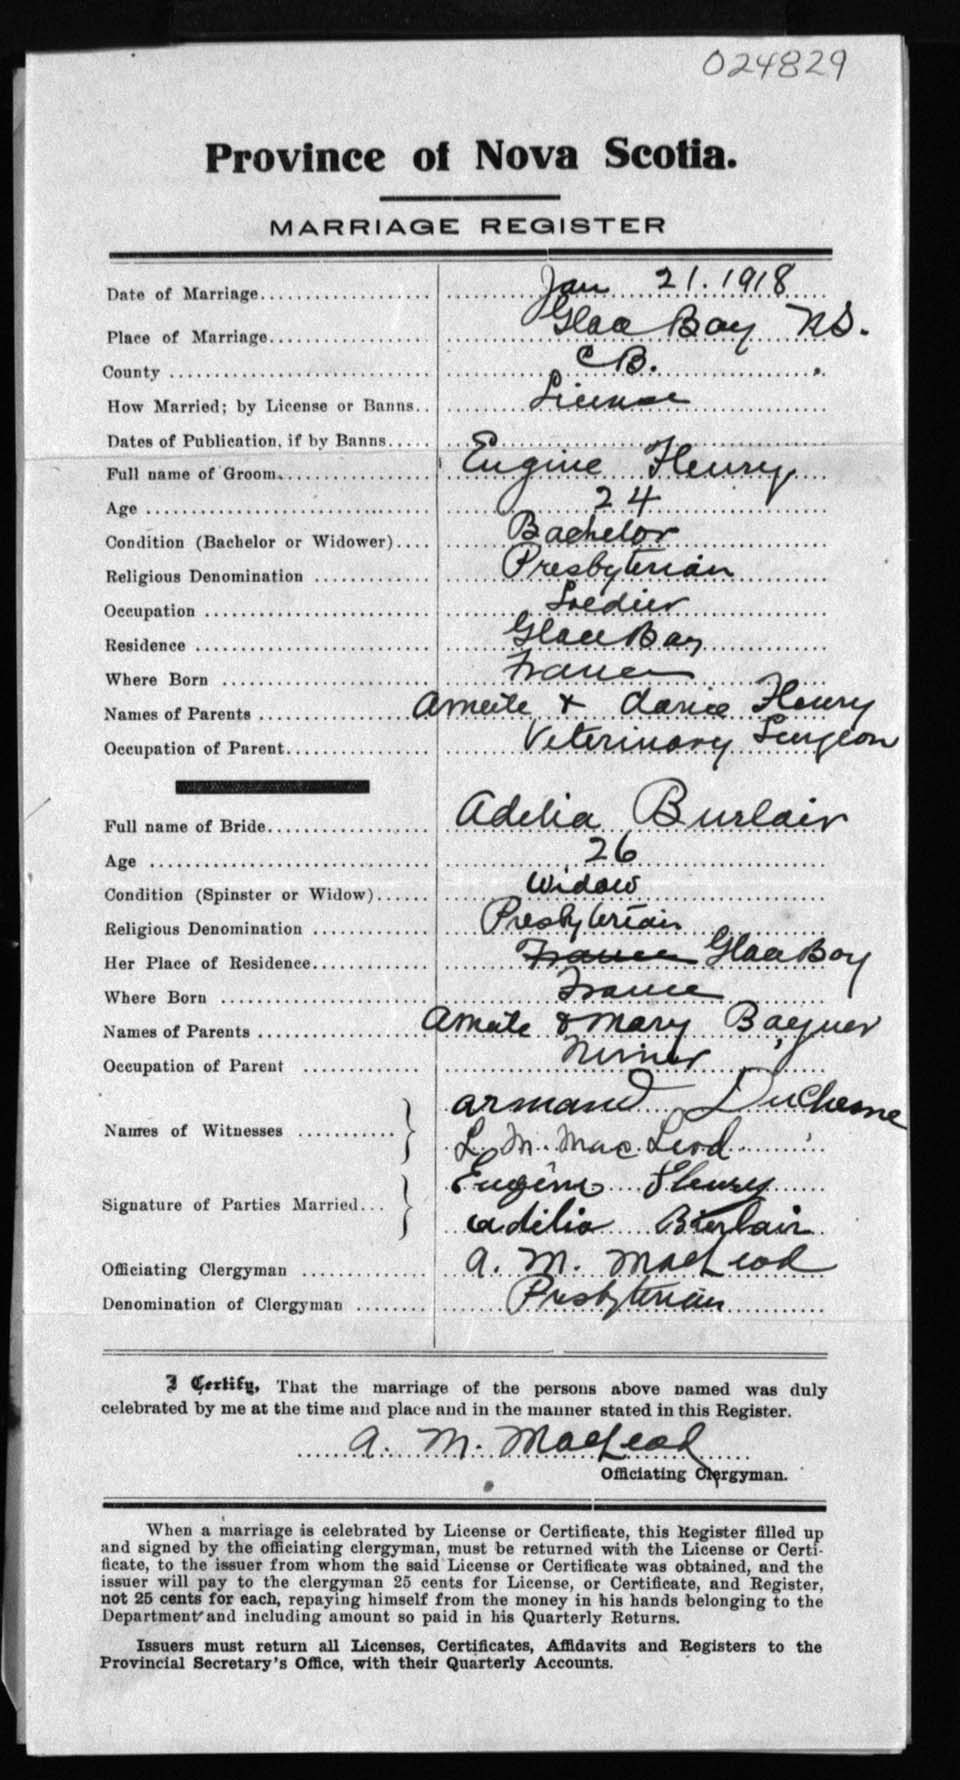 024829
Province of Nova Scotia.
MARRIAGE REGISTER
Date of Marriage Jan 21. 1918
Place of Marriage Glace Bay N.S.
County C B.
How Married; by License or Banns License
Dates of Publication, if by Banns
Full name of Groom Eugine Fleury
Age 24
Condition (Bachelor or Widower) Bachelor
Religious Denomination Presbyterian
Occupation Soldier
Residence Glace Bay
Where Born France
Names of Parents & Fleury
Occupation of Parent Veterinary Surgeon
Full name of Bride Adelia Burlair
Age 26
Condition (Spinster or Widow) Widow
Religious Denomination Presbyterian
Her Place of Residence France Glace Bay
Where Born France
Names of Parents & Mary
Occupation of Parent
Names of Witnesses Armand DuChesne
L. M. MacLeod
Signature of Parties Married Eugène Fleury
Adélia
Officiating Clergyman A. M. MacLeod
Denomination of Clergyman Presbyterian
I Certify, That the marriage of the persons above named was duly
celebrated by me at the time and place and in the manner stated in this Register.
A. M. MacLeod
Officiating Clergyman.
When a marriage is celebrated by License or Certificate, this Register filled up
and signed by the officiating clergyman, must be returned with the License or Certi-
ficate, to the issuer from whom the said License or Certificate was obtained, and the
issuer will pay to the clergyman 25 cents for License, or Certificate, and Register,
not 25 cents for each, repaying himself from the money in his hands belonging to the
Department and including amount so paid in his Quarterly Returns.
Issuers must return all Licenses, Certificates, Affidavits and Registers to the
Provincial Secretary's Office, with their Quarterly Accounts.